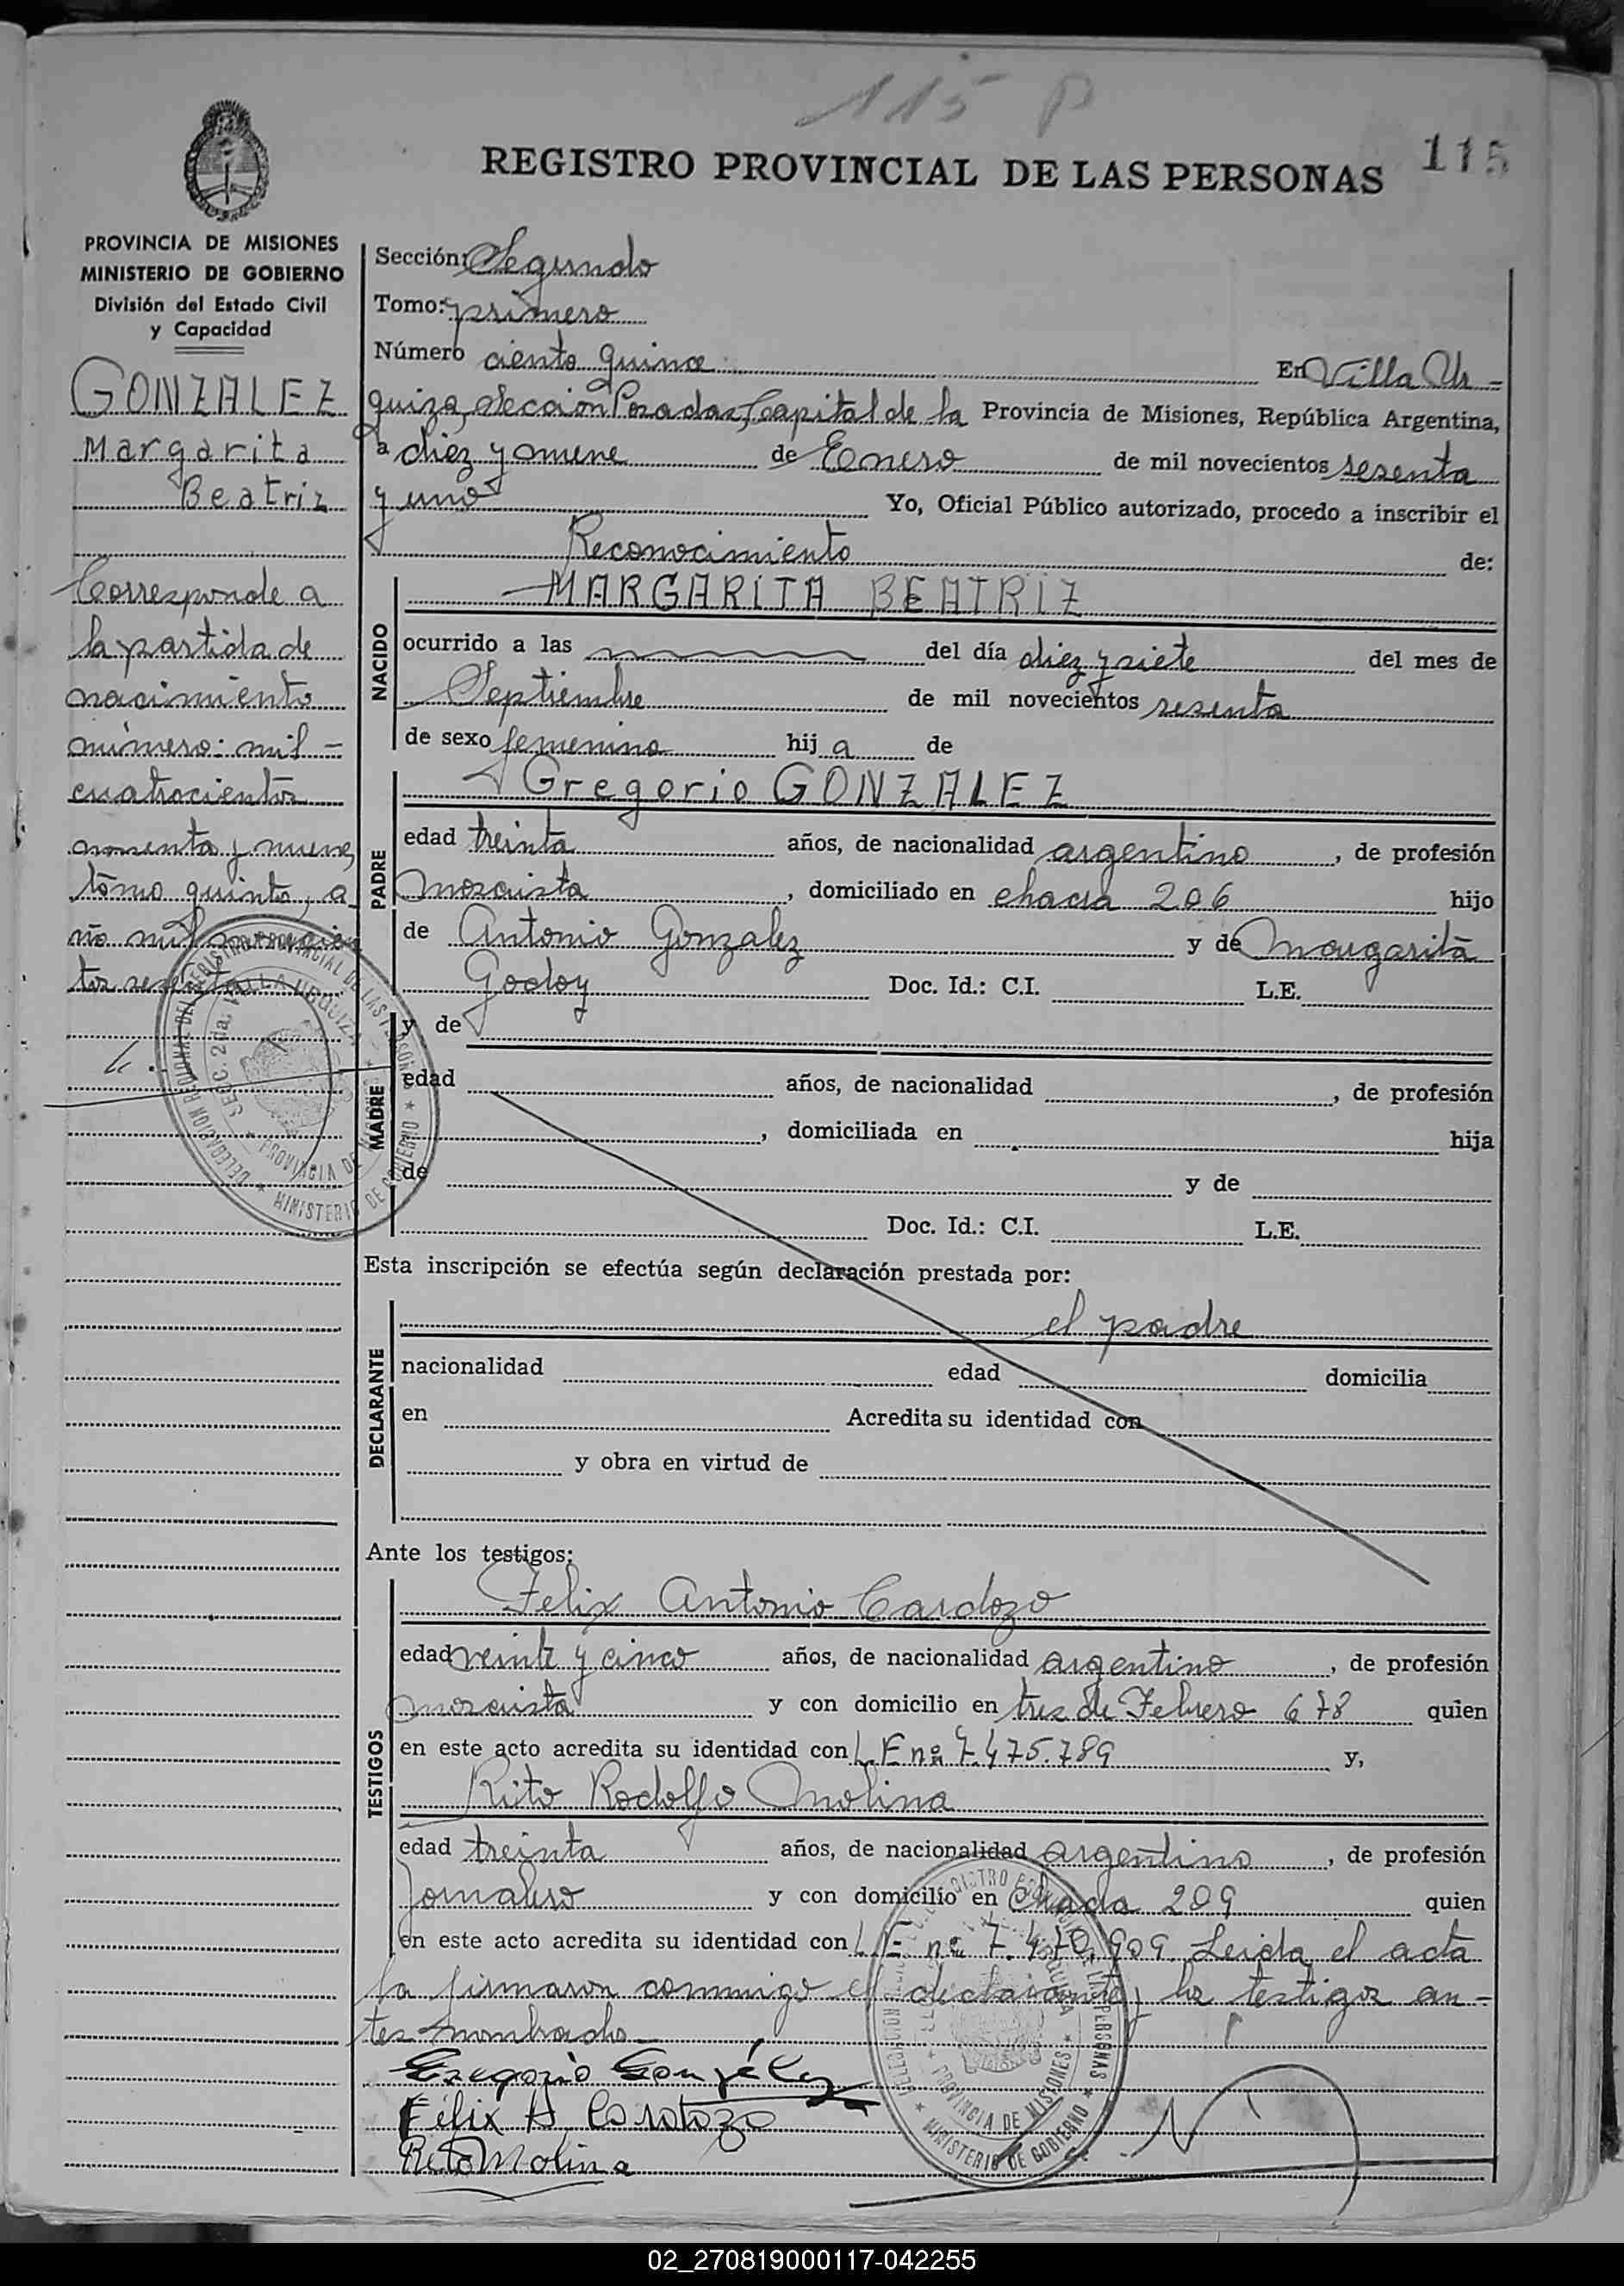 115 P
115
REGISTRO PROVINCIAL DE LAS PERSONAS
PROVINCIA DE MISIONES
MINISTERIO DE GOBIERNO
División del Estado Civil
y Capacidad
GONZALEZ
Margarita
Beatriz
Corresponde a
la partida de
nacimiento
número: mil -
cuatrocientos
noventa y nueve,
tomo quinto, a
ño mil novecien
tos sesenta
Sección: Segundo
Tomo: primero
Número ciento quince En Villa Ur -
quiza, Sección Posadas, Capital de la Provincia de Misiones, República Argentina,
a diez y nueve de Enero de mil novecientos sesenta
y uno Yo, Oficial Público autorizado, procedo a inscribir el
Reconocimiento de:
NACIDO
MARGARITA BEATRIZ
ocurrido a las del día diez y siete del mes de
Septiembre de mil novecientos sesenta
de sexo femenino hija de
PADRE
Gregorio GONZALEZ
edad treinta años, de nacionalidad argentino, de profesión
mosaista, domiciliado en chacra 206 hijo
de Antonio Gonzalez y de Margarita
Godoy Doc. Id.: C.I. L.E.
MADRE
y de
edad años, de nacionalidad , de profesión
, domiciliada en hija
de y de
Doc. Id.: C.I. L.E.
Esta inscripción se efectúa según declaración prestada por:
DECLARANTE
el padre
nacionalidad edad domicilia
en Acredita su identidad con
y obra en virtud de
Ante los testigos:
TESTIGOS
Felix Antonio Cardozo
edad veinte y cinco años, de nacionalidad argentino, de profesión
mosaista y con domicilio en tres de Febrero 678 quien
en este acto acredita su identidad con L.E nº 7.475.789 y,
Rito Rodolfo Molina
edad treinta años, de nacionalidad argentino, de profesión
Jornalero y con domicilio en Chacra 209 quien
en este acto acredita su identidad con L.E nº 7.470.909. Leida el acta
la firmaron conmigo el declarante y los testigos an -
tes nombrados
Gregorio González
Félix A Cardozo
Rito Molina
DELEGACION REGIONAL DEL REGISTRO PROVINCIAL DE LAS PERSONAS
SECC. 2da. VILLA URQUIZA
PROVINCIA DE MISIONES
MINISTERIO DE GOBIERNO
PROVINCIA DE MISIONES
MINISTERIO DE GOBIERNO
02_270819000117-042255